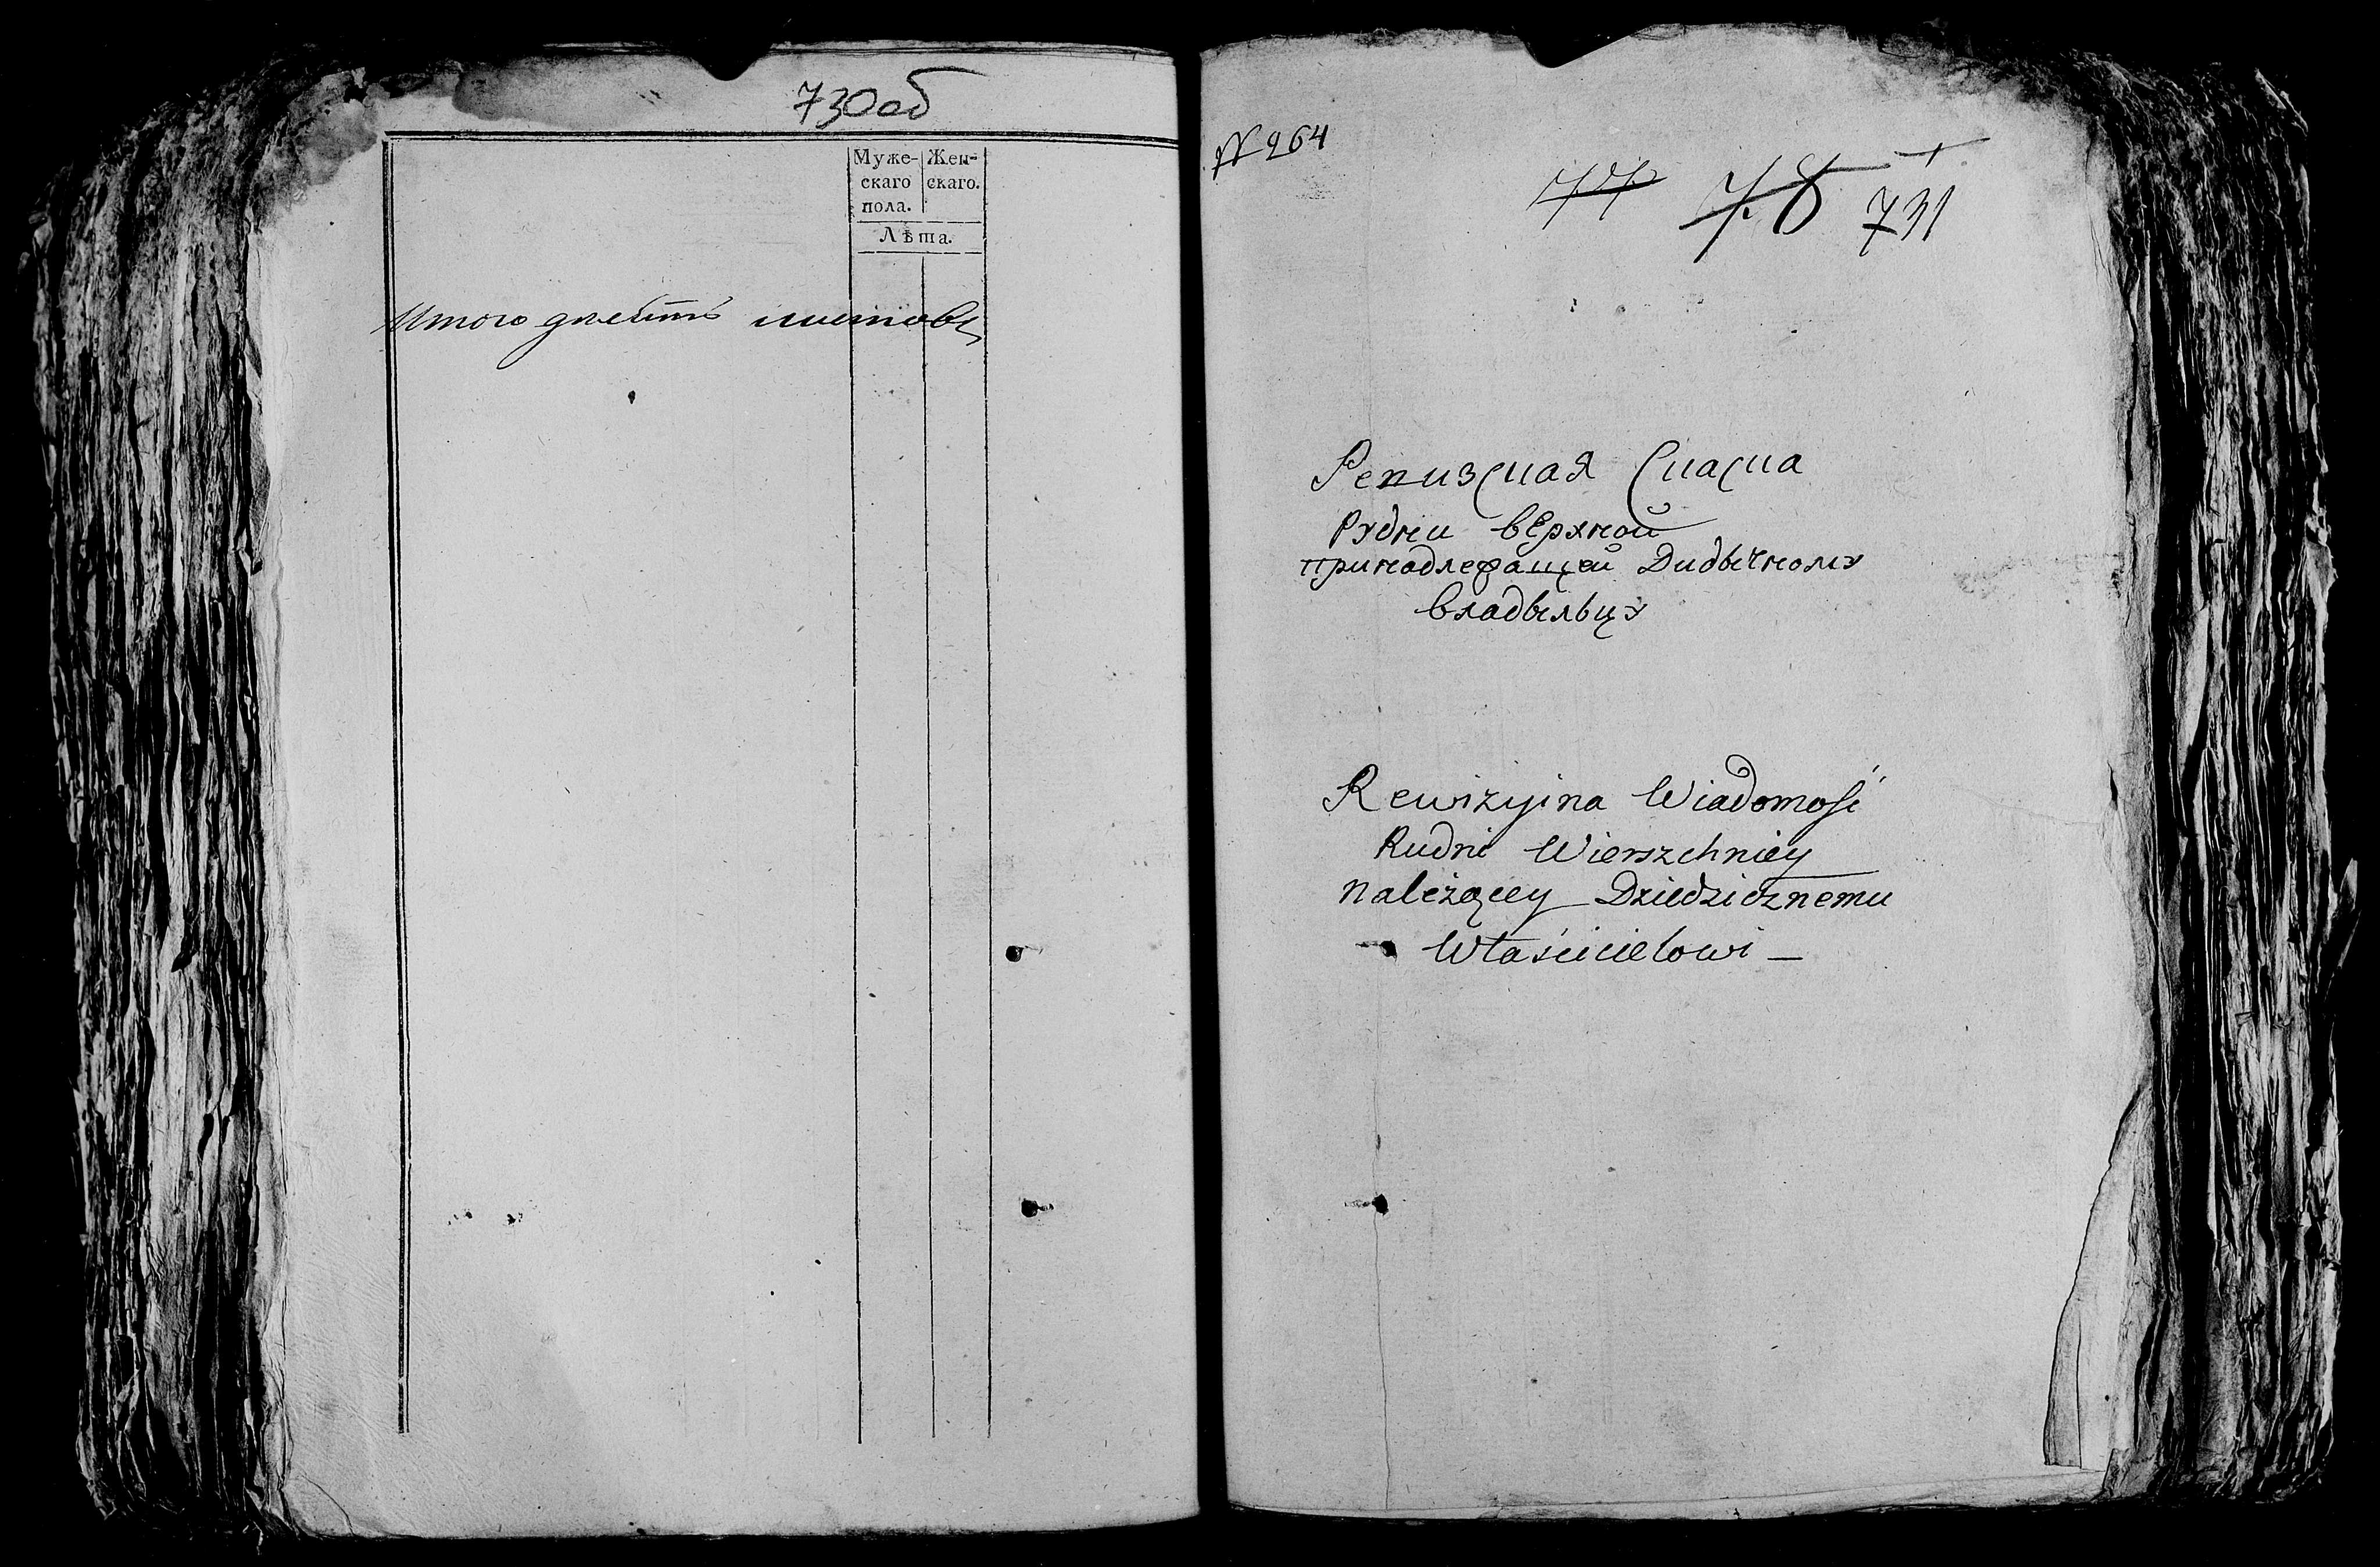 730об
Муже- Жен-
скаго скаго.
пола.
Лѣта.
Итого девять листовъ
N 264
731
Репизсная Снасна
Рудни верхной
принадлежащей Дидычному
владѣльцу
Rewizyina Wiadomość
Rudni Wierszchniey
należącey Dziedzicznemu
Właścicielowi —